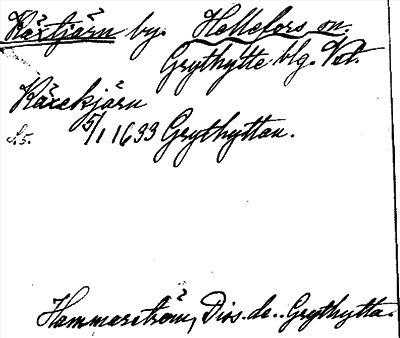 Kåxtjärn by. Hellefors sn.
Grythytte blg. Vstm.
Kåxekjärn
S. 5. 5/1 1633 Grythyttan.
Hammarström, Dios. de.. Grythytta.